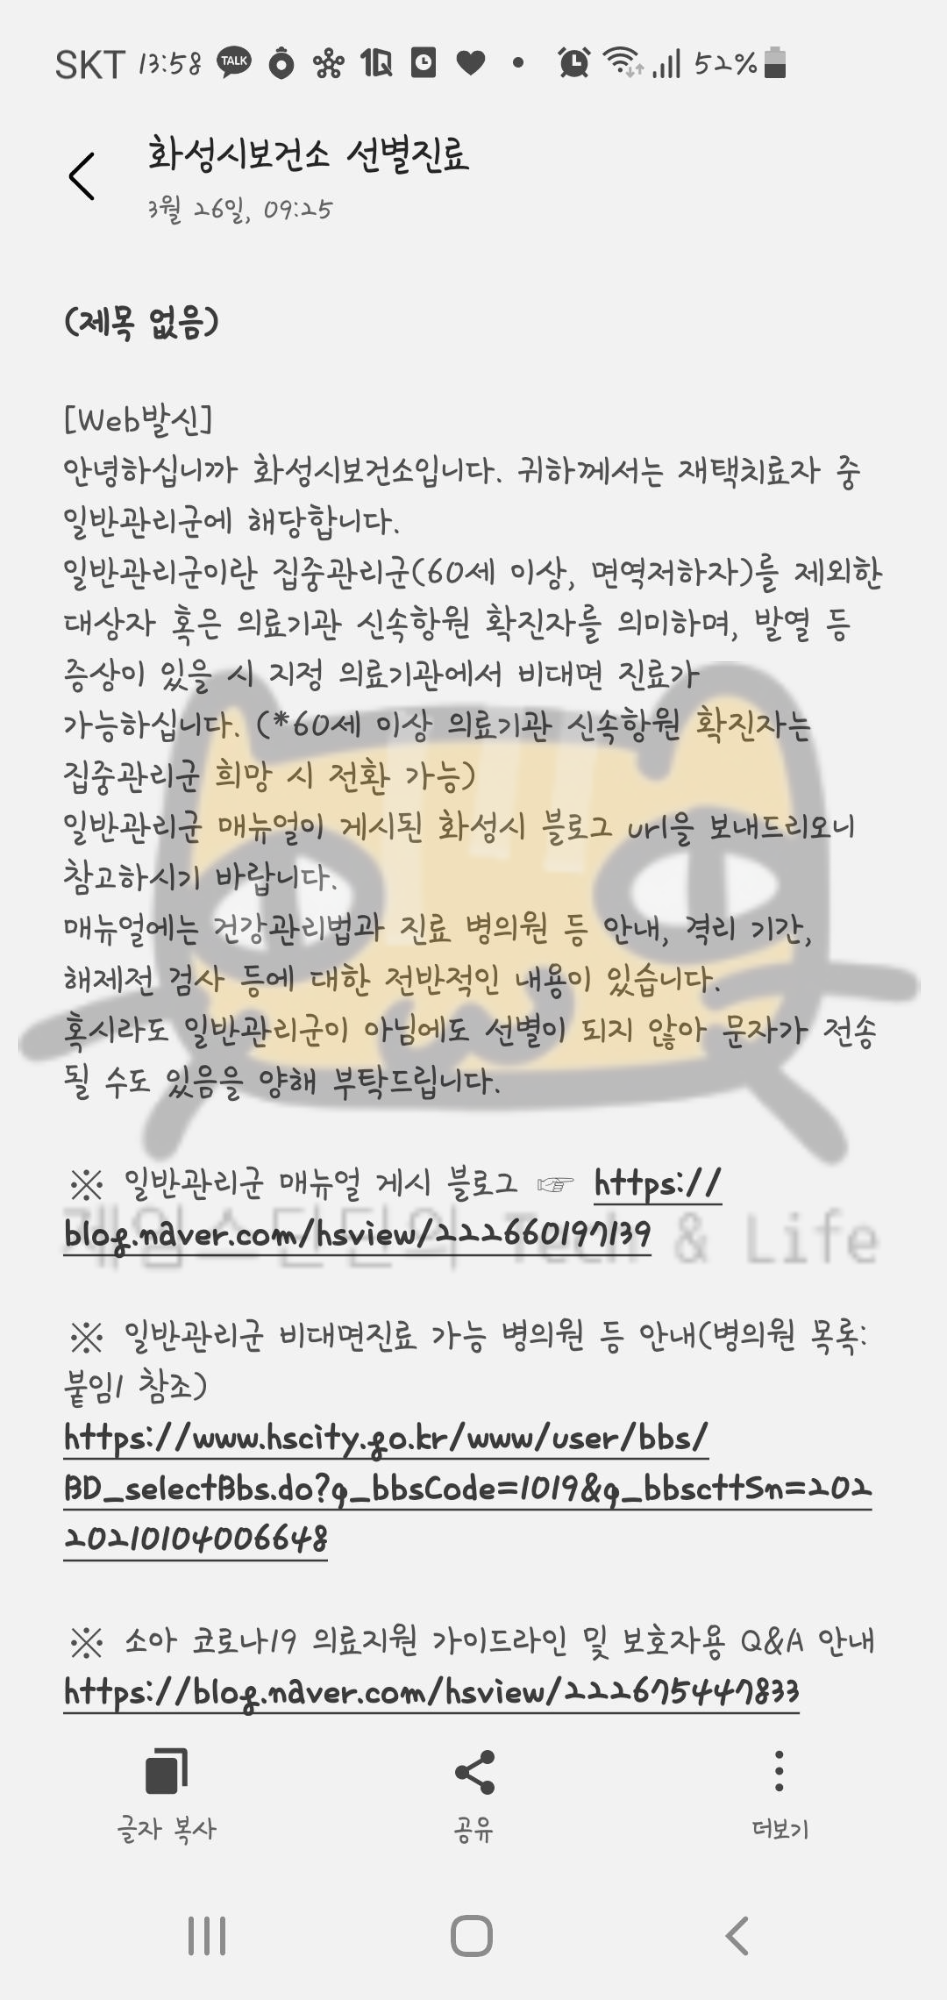 SKT 13:58 TALK 1Q 52%
화성시보건소 선별진료
3월 26일, 09:25
(제목 없음)
[Web발신]
안녕하십니까 화성시보건소입니다. 귀하께서는 재택치료자 중
일반관리군에 해당합니다.
일반관리군이란 집중관리군(60세 이상, 면역저하자)를 제외한
대상자 혹은 의료기관 신속항원 확진자를 의미하며, 발열 등
증상이 있을 시 지정 의료기관에서 비대면 진료가
가능하십니다. (*60세 이상 의료기관 신속항원 확진자는
집중관리군 희망 시 전환 가능)
일반관리군 매뉴얼이 게시된 화성시 블로그 url을 보내드리오니
참고하시기 바랍니다.
매뉴얼에는 건강관리법과 진료 병의원 등 안내, 격리 기간,
해제전 검사 등에 대한 전반적인 내용이 있습니다.
혹시라도 일반관리군이 아님에도 선별이 되지 않아 문자가 전송
될 수도 있음을 양해 부탁드립니다.
※ 일반관리군 매뉴얼 게시 블로그 ☞ https://
blog.naver.com/hsview/222660197139
게임스틴딘의 Tech & Life
※ 일반관리군 비대면진료 가능 병의원 등 안내(병의원 목록:
붙임1 참조)
https://www.hscity.go.kr/www/user/bbs/
BD_selectBbs.do?q_bbsCode=1019&q_bbscttSn=202
20210104006648
※ 소아 코로나19 의료지원 가이드라인 및 보호자용 Q&A 안내
https://blog.naver.com/hsview/222675447833
글자 복사
공유
더보기